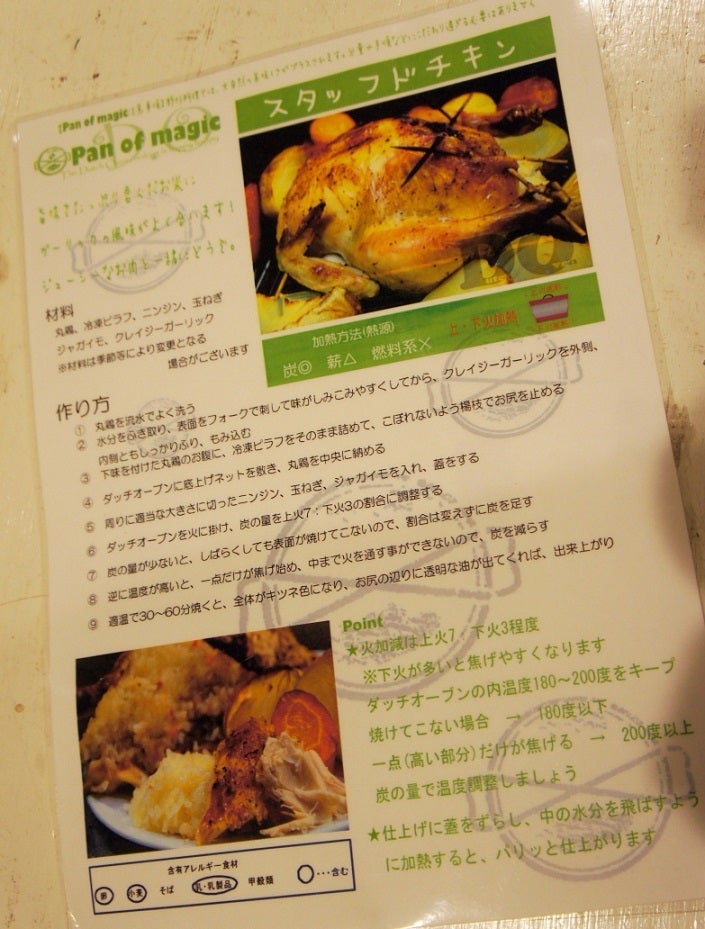 Pan of magic
スタッフドチキン
旨味をたっぷり含んだお米に
ガーリックの風味がよく合います！
ジューシーなお肉と一緒にどうぞ。
材料
丸鶏、冷凍ピラフ、ニンジン、玉ねぎ
ジャガイモ、クレイジーガーリック
※材料は季節等により変更となる
場合がございます
加熱方法(熱源)
炭◎ 薪△ 燃料系×
上・下火加熱
作り方
① 丸鶏を流水でよく洗う
② 水分をふき取り、表面をフォークで刺して味がしみこみやすくしてから、クレイジーガーリックを外側、
内側ともしっかりふり、もみ込む
③ 下味を付けた丸鶏のお腹に、冷凍ピラフをそのまま詰めて、こぼれないよう楊枝でお尻を止める
④ ダッチオーブンに底上げネットを敷き、丸鶏を中央に納める
⑤ 周りに適当な大きさに切ったニンジン、玉ねぎ、ジャガイモを入れ、蓋をする
⑥ ダッチオーブンを火に掛け、炭の量を上火7：下火3の割合に調整する
⑦ 炭の量が少ないと、しばらくしても表面が焼けてこないので、割合は変えずに炭を足す
⑧ 逆に温度が高いと、一点だけが焦げ始め、中まで火を通す事ができないので、炭を減らす
⑨ 適温で30～60分焼くと、全体がキツネ色になり、お尻の辺りに透明な油が出てくれば、出来上がり
Point
★火加減は上火7・下火3程度
※下火が多いと焦げやすくなります
ダッチオーブンの内温度180～200度をキープ
焼けてこない場合 → 180度以下
一点(高い部分)だけが焦げる → 200度以上
炭の量で温度調整しましょう
★仕上げに蓋をずらし、中の水分を飛ばすよう
に加熱すると、パリッと仕上がります
含有アレルギー食材
卵 小麦 そば 乳・乳製品 甲殻類 ○･･･含む